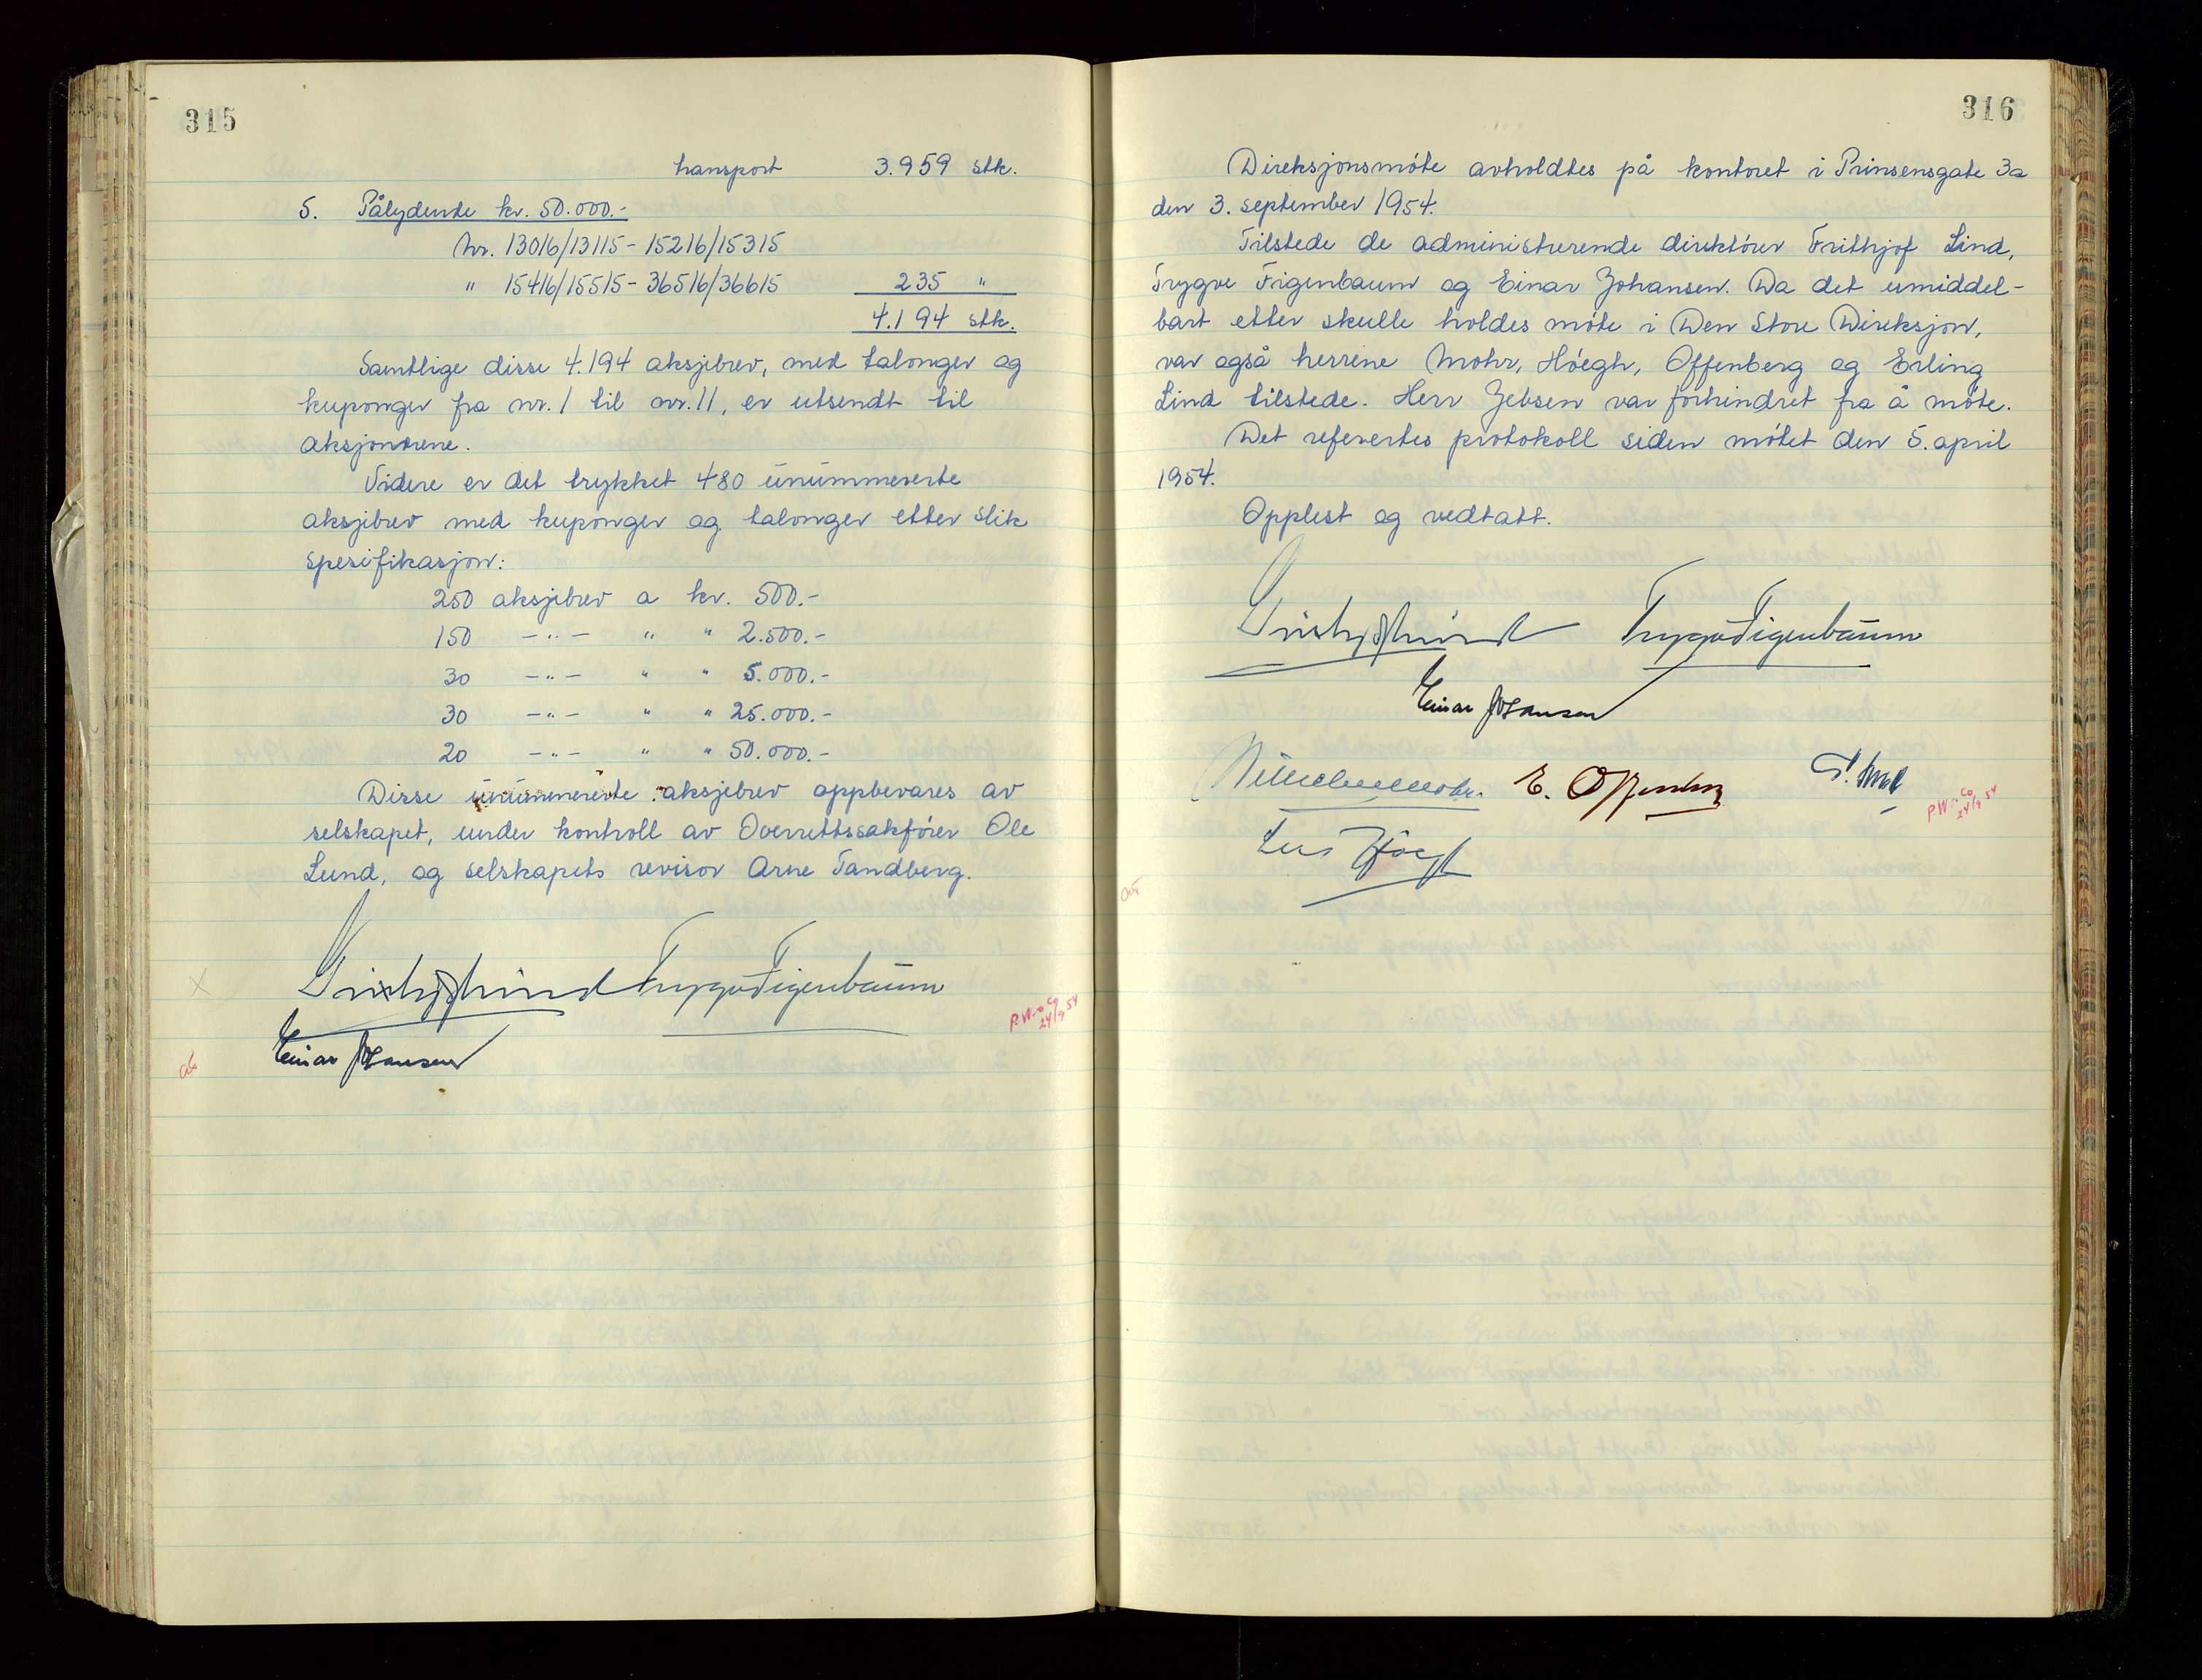 315
transport 3.959 stk.
5. Pålydende kr. 50.000.-
Nr. 13016/13115 - 15216/15315
" 15416/15515 - 36516/36615 235 "
4.194 stk.
Samtlige disse 4.194 aksjebrev, med talonger og
kuponger fra nr. 1 til nr. 11, er utsendt til
aksjonærene.
Videre er det trykket 480 unummererte
aksjebrev med kuponger og talonger etter slik
spesifikasjon:
250 aksjebrev a kr. 500.-
150 -"- " " 2.500.-
30 -"- " " 5.000.-
30 -"- " " 25.000.-
20 -"- " " 50.000.-
Disse unummererte aksjebrev oppbevares av
selskapet, under kontroll av Overrettssakfører Ole
Lund, og selskapets revisor Arne Tandberg.
Frithjof Lind Trygve Figenbaum
P.W. & Co 24/9 54
Einar Johansen
316
Direksjonsmøte avholdtes på kontoret i Prinsensgate 3a
den 3. september 1954.
Tilstede de administrerende direktører Frithjof Lind,
Trygve Figenbaum og Einar Johansen. Da det umiddel-
bart etter skulle holdes møte i Den Store Direksjon,
var også herrene Mohr, Høegh, Offenberg og Erling
Lind tilstede. Herr Jebsen var forhindret fra å møte.
Det refertes protokoll siden møtet den 5. april
1954.
Opplest og vedtatt.
Frithjof Lind Trygve Figenbaum
Einar Johansen
Wilhelm Mohr. E. Offenberg
P.W. & Co 24/9 54
Leif Høegh